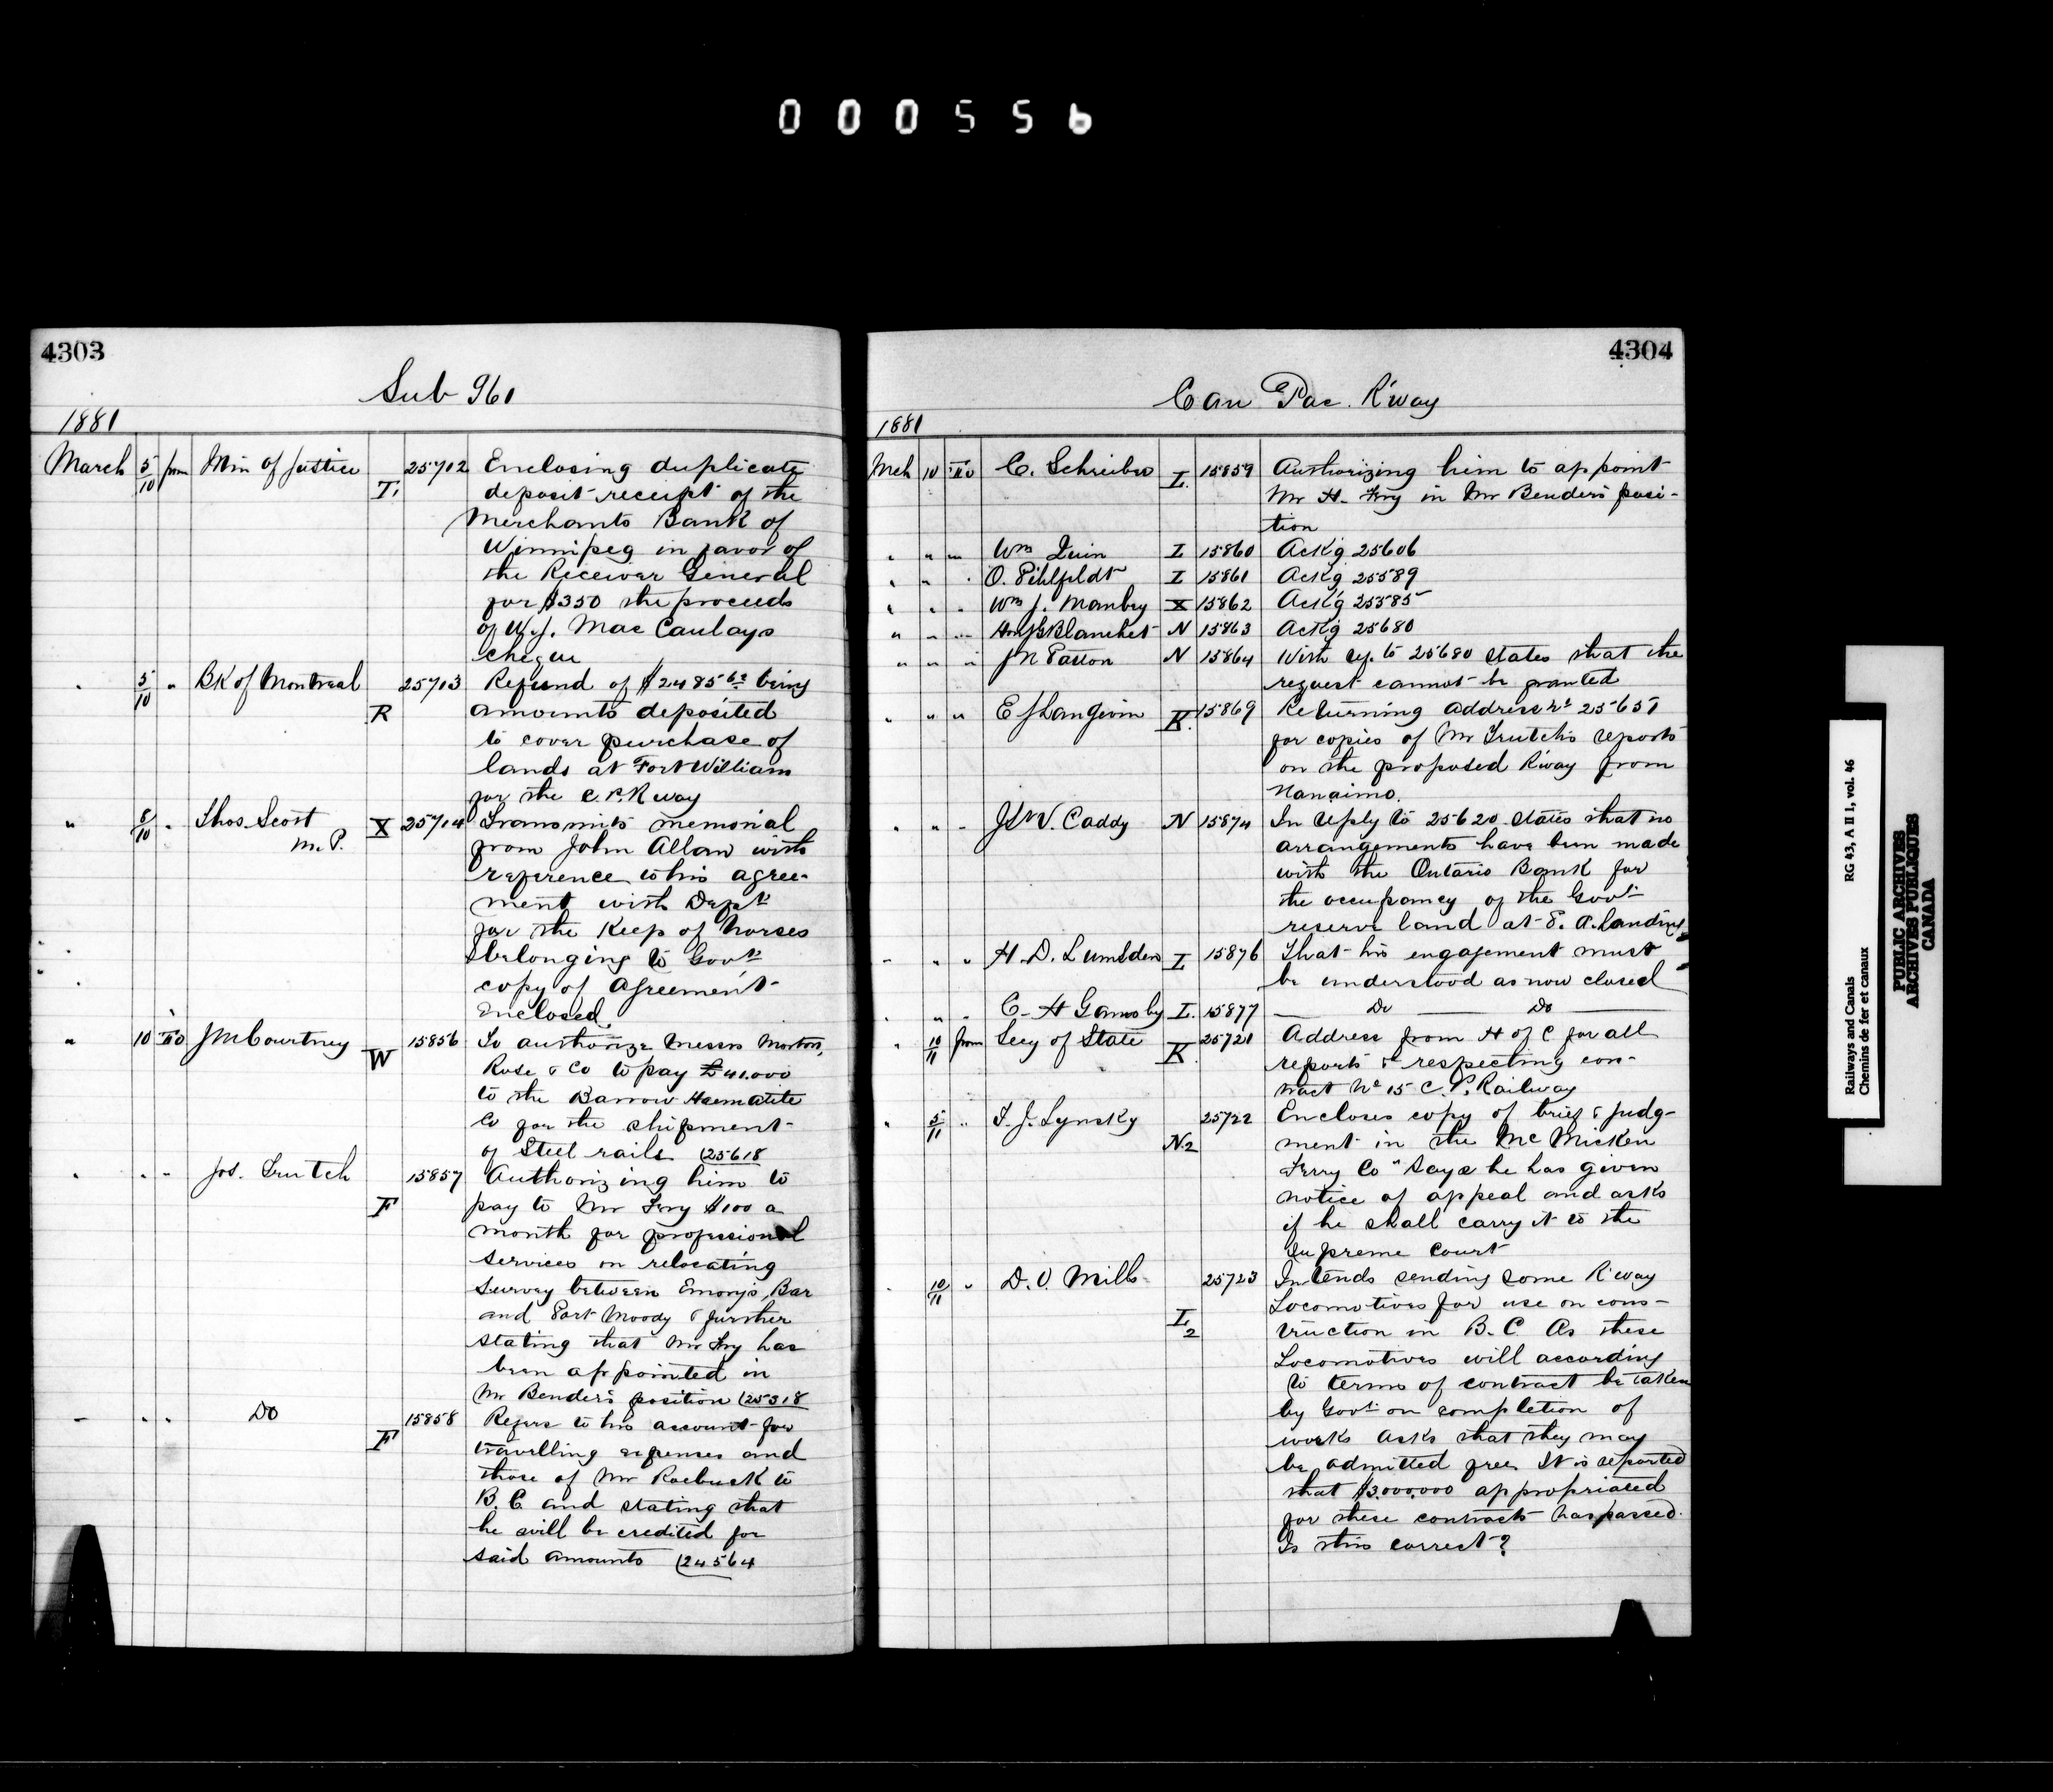 000556
4303
Sub 961
1881
March 5/10 from Min of Justice T. 25712 Enclosing duplicate
deposit receipt of the
Merchants Bank of
Winnipeg in favor of
the Receiver General
for $350 the proceeds
of W.J. Mac Caulays
cheque
" 5/10 " BK of Montreal R 25713 Refund of $2485 62 being
amounts deposited
to cover purchase of
lands at Fort William
for the C.P.R way
" 8/10 " Thos. Scott X 25714 Transmits memorial
M.P. from John Allan with
reference to his agree-
ment with Dept
for the Keep of horses
belonging to Govt
copy of Agreement
Enclosed
" 10 To J M Courtney W 15856 To authorize Messrs Morton,
Rose & Co to pay £41.000
to the Barrow Haematite
Co for the shipment
of Steel rails (25618
" " " Jos. Trutch F 15857 Authorizing him to
pay to Mr Fry $100 a
month for professional
services on relocating
Survey between Emorys Bar
and Port Moody & further
stating that Mr Fry has
been appointed in
Mr Bender's position (25318
" " " Do F 15858 Refers to his account for
travelling expenses and
those of Mr Roebuck to
B.C and stating that
he will be credited for
said amounts (24564
4304
Can Pac. R'way
1881
Mch 10 To C. Schreiber I. 15859 Authorizing him to appoint
Mr H. Fry in Mr Bender's posi-
tion
" " " Wm I 15860 Ackg 25606
" " " O. Pihlfeldt I 15861 Ackg 25589
" " " Wm J. Manbey X 15862 Ackg 25585
" " " Blanchet N 15863 Ackg 25680
" " " J N Patton N 15864 With ref. to 25680 states that the
request cannot be granted
" " " E J Langevin K. 15869 Returning address No 25651
for copies of Mr Trutch's reports
on the proposed R'way from
Nanaimo.
" " " Caddy N 15874 In reply to 25620 states that no
arrangements have been made
with the Ontario Bank for
the occupancy of the Govt
reserve land at P. A. Landing
" " " H. D. Lumsden I 15876 That his engagement must
be understood as now closed
" " " C. H Gamsby I. 15877 Do Do
" 10/11 from Secy of State K 25721 Address from H of C for all
reports &c respecting con-
tract No 15 C. P. Railway
" 5/11 " T. J. Lynsky N2 25722 Encloses copy of brief & judg-
ment in the Mc Micken
Ferry Co " Says he has given
notice of appeal and asks
if he shall carry it to the
Supreme Court
" 10/11 " D. O. Mills I2 25723 Intends sending some R'way
Locomotives for use on cons-
truction in B.C. As these
Locomotives will according
to terms of contract be taken
by Govt on completion of
works asks that they may
be admitted free. It is reported
that $3.000.000 appropriated
for these contracts has passed.
Is this correct?
Railways and Canals RG 43, A II 1, vol. 46
Chemins de fer et canaux
PUBLIC ARCHIVES
ARCHIVES PUBLIQUES
CANADA